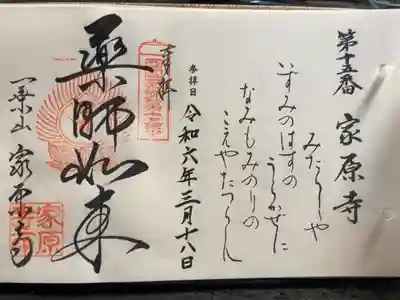 第十五番 家原寺
みたらしや
いずみのはすの
うらかぜに
なみもみのりの
こえやたつらん
参拝日 令和六年三月十八日
奉拝
薬師如来
一乗山 家原寺